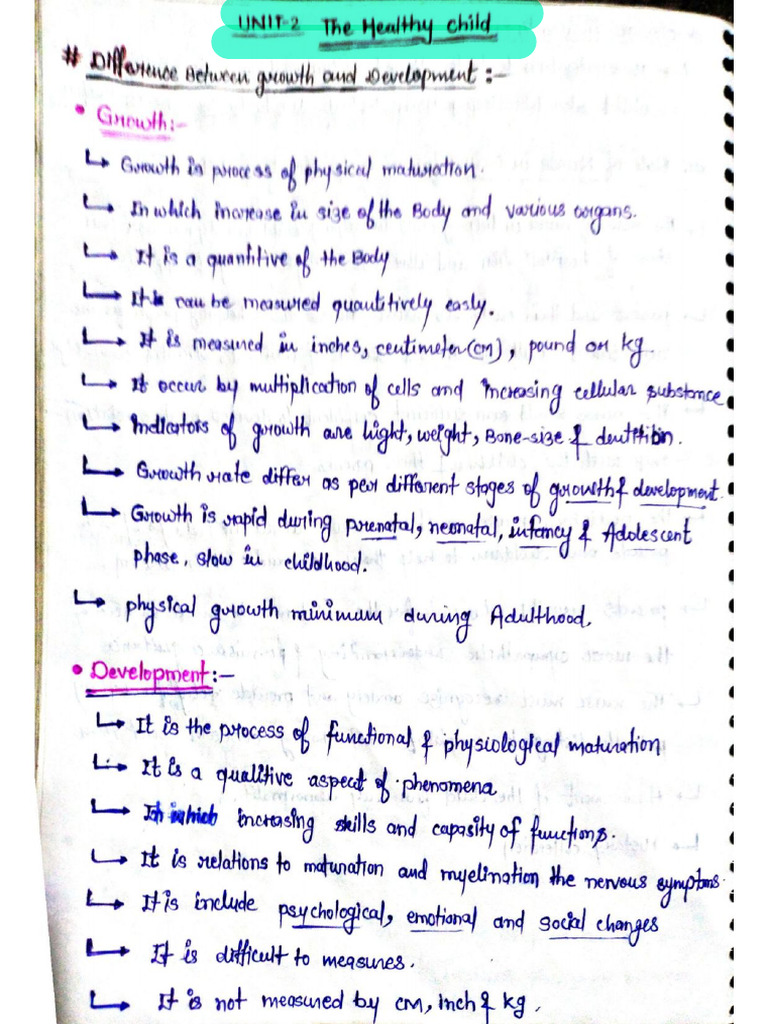 UNIT-2 The Healthy child
# Difference Between growth and Development :-
• Growth:-
↳ Growth is process of physical maturation.
↳ In which increase in size of the Body and various organs.
↳ It is a quantitive of the Body
↳ It can be measured quantitively easly.
↳ It is measured in inches, centimeter(cm), pound or kg.
↳ It occur by multiplication of cells and increasing cellular substance
↳ Indicators of growth are hight, weight, Bone-size & dentitibin.
↳ Growth rate differ as per different stages of growth & development.
↳ Growth is rapid during prenatal, neonatal, infancy & Adolescent
phase, slow in childhood.
↳ physical growth minimum during Adulthood.
• Development:-
↳ It is the process of functional & physiological maturation
↳ It is a qualitive aspect of phenomena
↳ In which increasing skills and capasity of functions.
↳ It is relations to maturation and myelination the nervous symptoms.
↳ It is include psychological, emotional and social changes
↳ It is difficult to measures.
↳ It is not measured by cm, inch & kg.